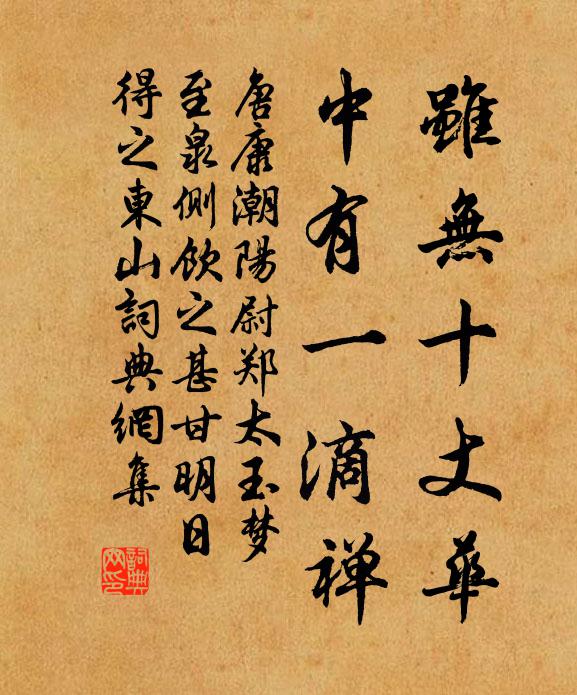 雖無十丈華
中有一滴禅
唐庚潮陽尉郑太玉梦
至泉側飲之甚甘明日
得之東山詞典網集
詞典网印